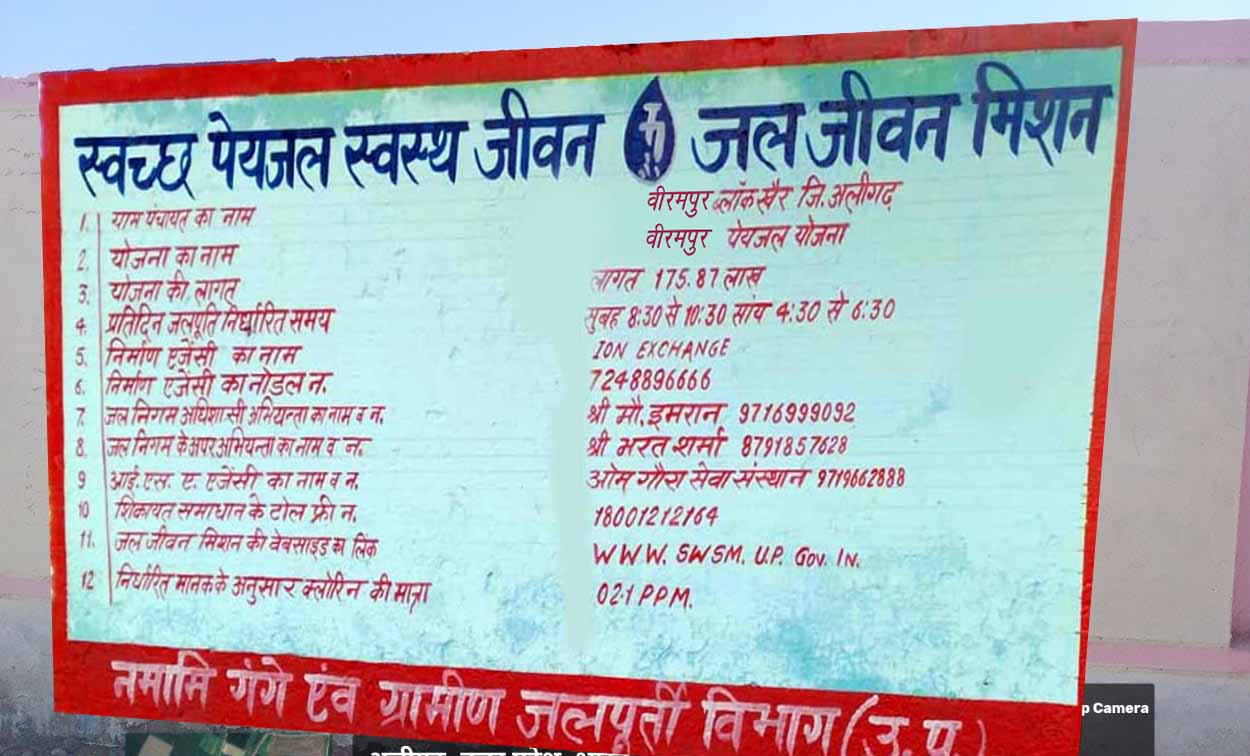 स्वच्छ पेयजल स्वस्थ जीवन जल जीवन मिशन
1. ग्राम पंचायत का नाम वीरमपुर ब्लॉक खैर जि. अलीगढ़
2. योजना का नाम वीरमपुर पेयजल योजना
3. योजना की लागत लागत 175.87 लाख
4. प्रतिदिन जलपूति निर्धारित समय सुबह 8:30 से 10:30 सांय 4:30 से 6:30
5. निर्माण एजेंसी का नाम ION EXCHANGE
6. निर्माण एजेंसी का नोडल न. 7248896666
7. जल निगम अधिशासी अभियन्ता का नाम व न. श्री मौ. इमरान 9716999092
8. जल निगम के अपर अभियन्ता का नाम व न. श्री भरत शर्मा 8791857628
9 आई. एस. ए. एजेंसी का नाम व न. ओम गौरा सेवा संस्थान 9719662888
10 शिकायत समाधान के टोल फ्री न. 18001212164
11. जल जीवन मिशन की वेबसाइड का लिंक WWW. SWSM. U.P. Gov. In.
12 निर्धारित मानक के अनुसार क्लोरिन की मात्रा 02.1 PPM.
नमामि गंगे एंव ग्रामीण जलपूर्ती विभाग (उ.प्र.)
p Camera